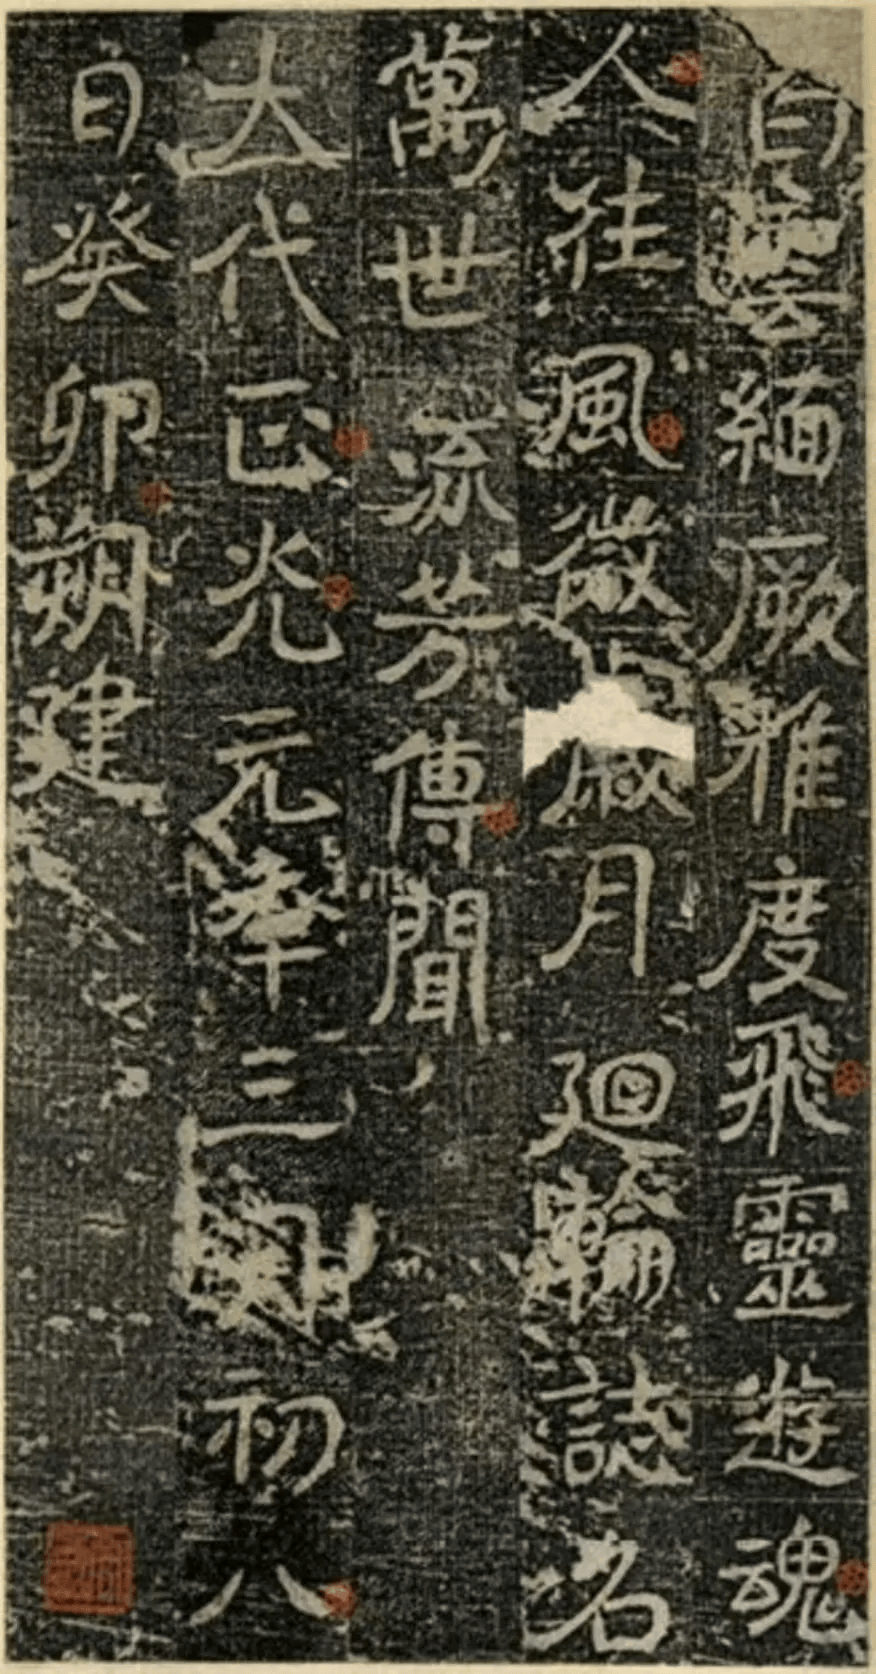 白雲緬厥雅度飛靈遊魂
人往風微歲月廻輪誌名
萬世流芳傳聞
大代正光元年三月初八
日癸卯朔建